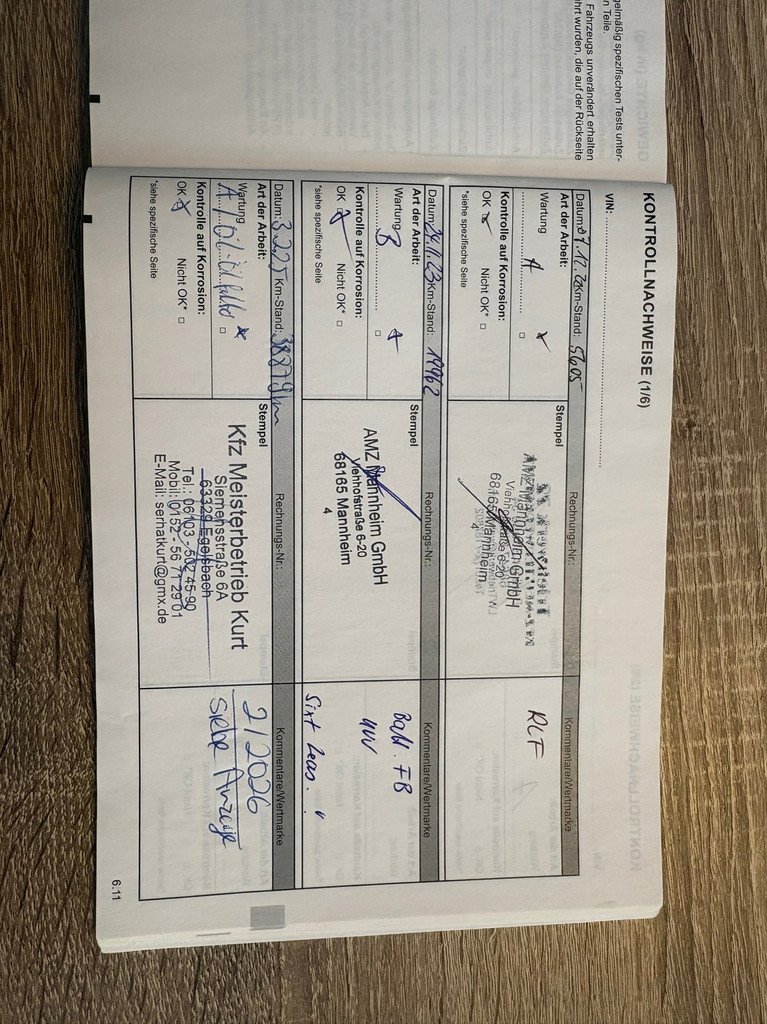 gelmäßig spezifischen Tests unter-
n Teile.
Fahrzeugs unverändert erhalten
hrt wurden, die auf der Rückseite
KONTROLLNACHWEISE (1/6)
VIN:
Datum: Km-Stand: 5605 Rechnungs-Nr.: Kommentare/Wertmarke
Art der Arbeit: Stempel
Wartung A
RLF
Kontrolle auf Korrosion:
OK Nicht OK*
*siehe spezifische Seite
AMZ Mannheim GmbH
Viehhofstraße 6-20
68165 Mannheim
4
Datum: 24.11.23 Km-Stand: 19962 Rechnungs-Nr.: Kommentare/Wertmarke
Art der Arbeit: Stempel
Wartung B
Kontrolle auf Korrosion:
OK Nicht OK*
*siehe spezifische Seite
AMZ Mannheim GmbH
Viehhofstraße 6-20
68165 Mannheim
4
FB
Sixt Leas.
Datum: 3.2.25 Km-Stand: 38879km Rechnungs-Nr.: Kommentare/Wertmarke
Art der Arbeit: Stempel
Wartung
A / Öl-
Kontrolle auf Korrosion:
OK Nicht OK*
*siehe spezifische Seite
Kfz Meisterbetrieb Kurt
Siemensstraße 6A
63329 Egelsbach
Tel.: 06103 - 502 45 90
Mobil: 0152 - 56 71 29 01
E-Mail: serhatkurt@gmx.de
2/2026
Siehe Anzeige
6.11